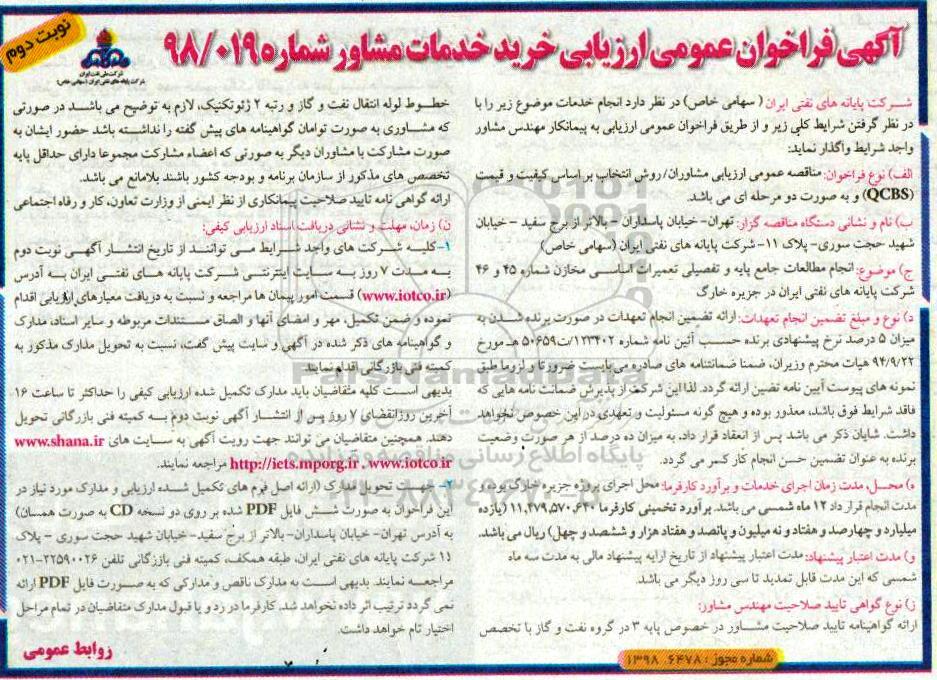 آگهی فراخوان عمومی ارزیابی خرید خدمات مشاور شماره ۹۸/۰۱۹
نوبت دوم
شرکت ملی نفت ایران
شرکت پایانه های نفتی ایران (سهامی خاص)
شرکت پایانه های نفتی ایران ( سهامی خاص) در نظر دارد انجام خدمات موضوع زیر را با
در نظر گرفتن شرایط کلی زیر و از طریق فراخوان عمومی ارزیابی به پیمانکار مهندس مشاور
واجد شرایط واگذار نماید:
الف) نوع فراخوان: مناقصه عمومی ارزیابی مشاوران/ روش انتخاب بر اساس کیفیت و قیمت
(QCBS) و به صورت دو مرحله ای می باشد.
ب) نام و نشانی دستگاه مناقصه گزار: تهران- خیابان پاسداران - بالاتر از برج سفید - خیابان
شهید حجت سوری- پلاک ۱۱- شرکت پایانه های نفتی ایران (سهامی خاص)
ج) موضوع: انجام مطالعات جامع پایه و تفصیلی تعمیرات اساسی مخازن شماره ۴۵ و ۴۶
شرکت پایانه های نفتی ایران در جزیره خارگ
د) نوع و مبلغ تضمین انجام تعهدات: ارائه تضمین انجام تعهدات در صورت برنده شدن به
میزان ۵ درصد نرخ پیشنهادی برنده حسب آئین نامه شماره ۱۲۳۴۰۲/ت۵۰۶۵۹ هـ مورخ
۹۴/۹/۲۲ هیات محترم وزیران، ضمنا ضمانتنامه های صادره می بایست ضرورتا و لزوما طبق
نمونه های پیوست آیین نامه تضمین ارائه گردد. لذا این شرکت از پذیرش ضمانت نامه هایی که
فاقد شرایط فوق باشد، معذور بوده و هیچ گونه مسئولیت و تعهدی در این خصوص نخواهد
داشت. شایان ذکر می باشد پس از انعقاد قرار داد، به میزان ده درصد از هر صورت وضعیت
برنده به عنوان تضمین حسن انجام کار کسر می گردد.
ه) محل، مدت زمان اجرای خدمات و برآورد کارفرما: محل اجرای پروژه جزیره خارک بوده و
مدت انجام قرار داد ۱۲ ماه شمسی می باشد. برآورد تخمینی کارفرما ۱۱,۴۷۹,۵۷۰,۶۴۰ (یازده
میلیارد و چهارصد و هفتاد و نه میلیون و پانصد و هفتاد هزار و ششصد و چهل) ریال می باشد.
و) مدت اعتبار پیشنهاد: مدت اعتبار پیشنهاد از تاریخ ارایه پیشنهاد مالی به مدت سه ماه
شمسی که این مدت قابل تمدید تا سی روز دیگر می باشد.
ز) نوع گواهی تایید صلاحیت مهندس مشاور:
ارائه گواهینامه تایید صلاحیت مشاور در خصوص پایه ۳ در گروه نفت و گاز با تخصص
خطوط لوله انتقال نفت و گاز و رتبه ۲ ژئوتکنیک، لازم به توضیح می باشد در صورتی
که مشاوری به صورت توامان گواهینامه های پیش گفته را نداشته باشد حضور ایشان به
صورت مشارکت با مشاوران دیگر به صورتی که اعضاء مشارکت مجموعا دارای حداقل پایه
تخصص های مذکور از سازمان برنامه و بودجه کشور باشند بلامانع می باشد.
ارائه گواهی نامه تایید صلاحیت پیمانکاری از نظر ایمنی از وزارت تعاون، کار و رفاه اجتماعی
ن) زمان، مهلت و نشانی دریافت اسناد ارزیابی کیفی:
۱-کلیه شرکت های واجد شرایط می توانند از تاریخ انتشار آگهی نوبت دوم
به مدت ۷ روز به سایت اینترنتی شرکت پایانه های نفتی ایران به آدرس
(www.iotco.ir) قسمت امور پیمان ها مراجعه و نسبت به دریافت معیارهای ارزیابی اقدام
نموده و ضمن تکمیل، مهر و امضای آنها و الصاق مستندات مربوطه و سایر اسناد، مدارک
و گواهینامه های ذکر شده در آگهی و سایت پیش گفت، نسبت به تحویل مدارک مذکور به
کمیته فنی بازرگانی اقدام نمایند.
بدیهی است کلیه متقاضیان باید مدارک تکمیل شده ارزیابی کیفی را حداکثر تا ساعت ۱۶
آخرین روز انقضای ۷ روز پس از انتشار آگهی نوبت دوم به کمیته فنی بازرگانی تحویل
دهند. همچنین متقاضیان می توانند جهت رویت آگهی به سایت های www.shana.ir
http://iets.mporg.ir . www.iotco.ir مراجعه نمایند.
۲- جهت تحویل مدارک (ارائه اصل فرم های تکمیل شده ارزیابی و مدارک مورد نیاز در
این فراخوان به صورت شش فایل PDF شده بر روی دو نسخه CD به صورت همسان)
به آدرس تهران- خیابان پاسداران- بالاتر از برج سفید- خیابان شهید حجت سوری - پلاک
۱۱ شرکت پایانه های نفتی ایران، طبقه همکف، کمیته فنی بازرگانی تلفن ۲۲۵۹۰۰۲۶-۰۲۱
مراجعه نمایند. بدیهی است به مدارک ناقص و مدارکی که به صورت فایل PDF ارائه
نمی گردد ترتیب اثر داده نخواهد شد. کارفرما در رد و یا قبول مدارک متقاضیان در تمام مراحل
اختیار تام خواهد داشت.
روابط عمومی
شماره مجوز : ۶۴۷۸. ۱۳۹۸
ParsNamadData
پایگاه اطلاع رسانی مناقصه و مزایده